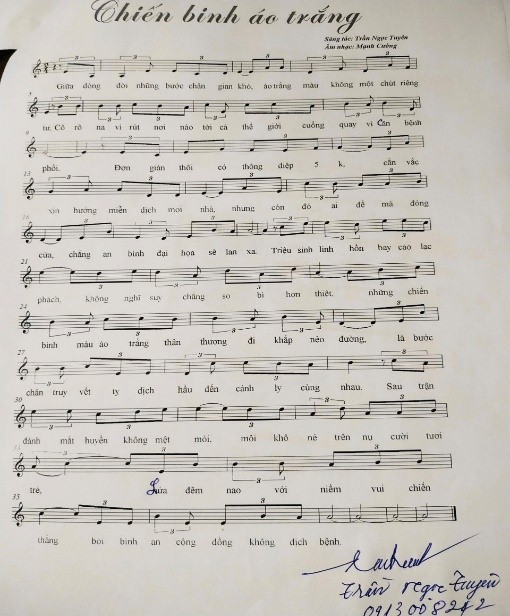 Chiến binh áo trắng
Sáng tác: Trần Ngọc Tuyên
Âm nhạc: Mạnh Cường
Giữa dòng đời những bước chân gian khó, áo trắng màu không một chút riêng
5
tư. Cô rô na vi rút nơi nào tới cả thế giới cuống quay vì Căn bệnh
9
phổi. Đơn giản thôi có thông điệp 5 k, cần vắc
13
xin hướng miễn dịch mọi nhà, nhưng còn đó ai để mã đóng
16
cửa, chẳng an bình đại họa sẽ lan xa. Triệu sinh linh hồn bay cao lạc
21
phách, không nghĩ suy chẳng so bì hơn thiệt. những chiến
24
binh màu áo trắng thân thương đi khắp nẻo đường, là bước
27
chân truy vết ty dịch hầu đến cánh ly cùng nhau. Sau trận
30
đánh mắt huyền không mệt mỏi, môi khô nẻ trên nụ cười tươi
33
trẻ, Lửa đêm nao với niềm vui chiến
35
thắng bởi bình an cộng đồng không dịch bệnh.
Trần Ngọc Tuyên
0913 008242